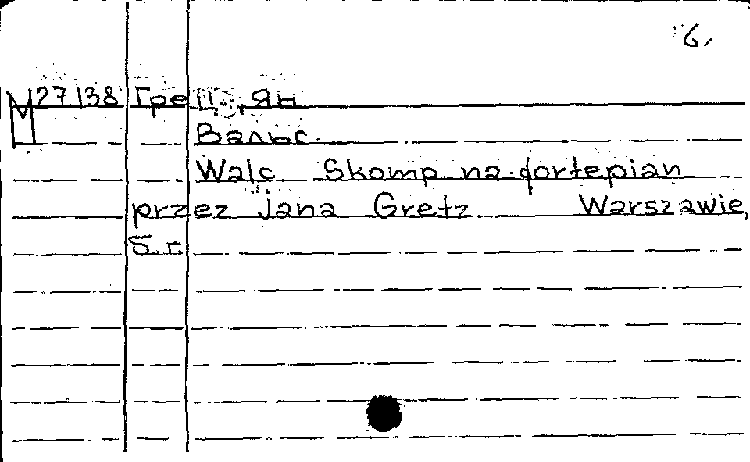 6.
М 27138 Грец, Ян
Вальс.
Walc Skomp na fortepian
przez Jana Gretz Warszawie,
S. r.